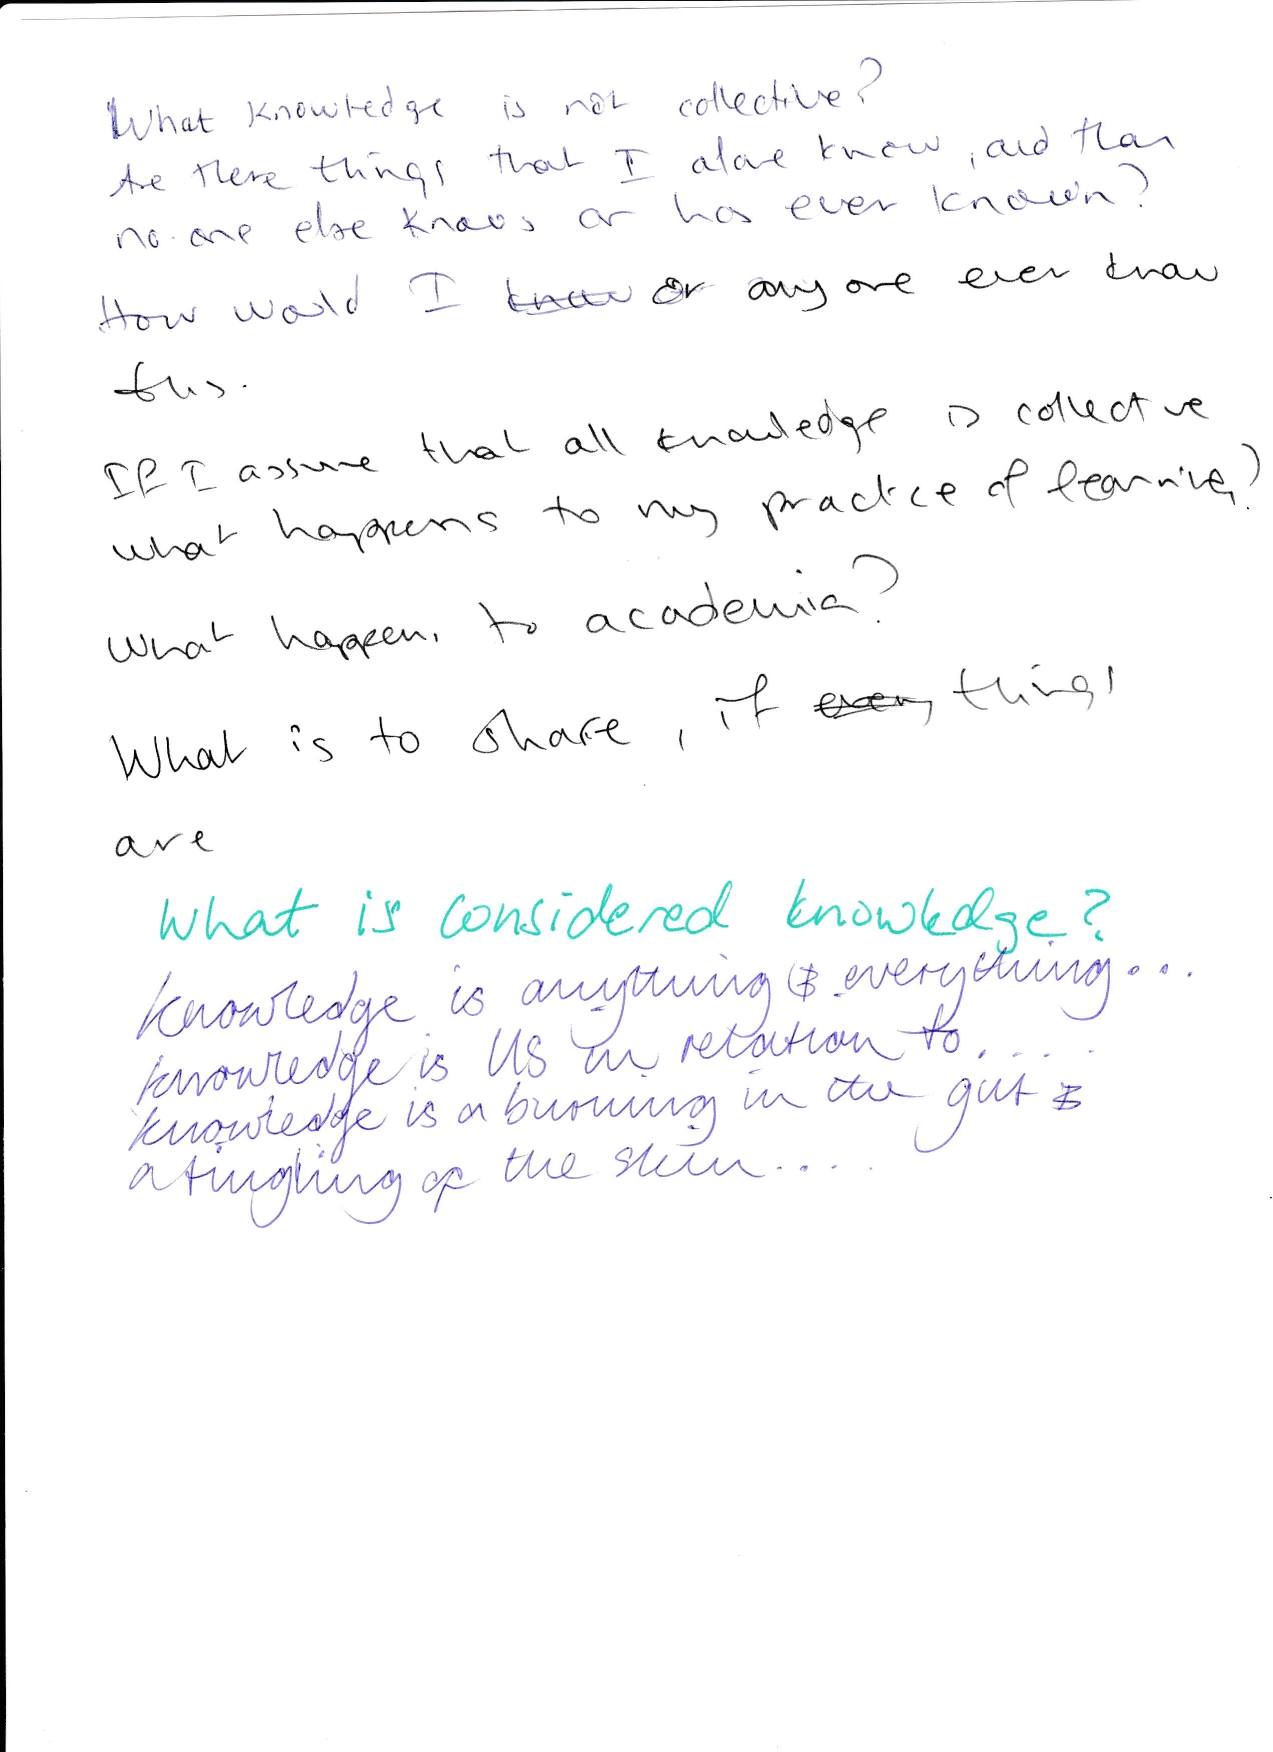 What knowledge is not collective?
Are there things that I alone know, and than
no one else knows or has ever known?
How would I know or any one ever know
this.
If I assume that all knowledge is collective
what happens to my practice of learning?
What happens to academia?
What is to share, if every things
are
What is considered knowledge?
Knowledge is anything & everything...
knowledge is US in relation to.....
knowledge is a burning in the gut &
a tingling of the skin....